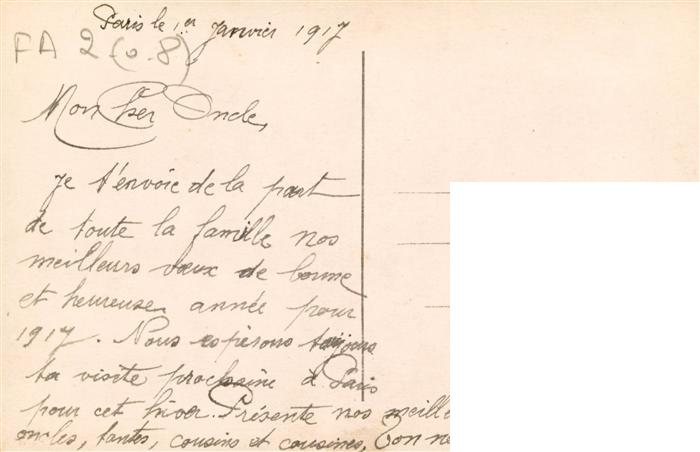 Paris le 1er Janvier 1917
FA 2 (0.8)
Mon Cher Oncle,
Je t'envoie de la part
de toute la famille nos
meilleurs vœux de bonne
et heureuse année pour
1917. Nous espérons toujours
ta visite prochaine à Paris
pour cet hiver. Présente nos meille
oncles, tantes, cousins et cousines, Ton ne